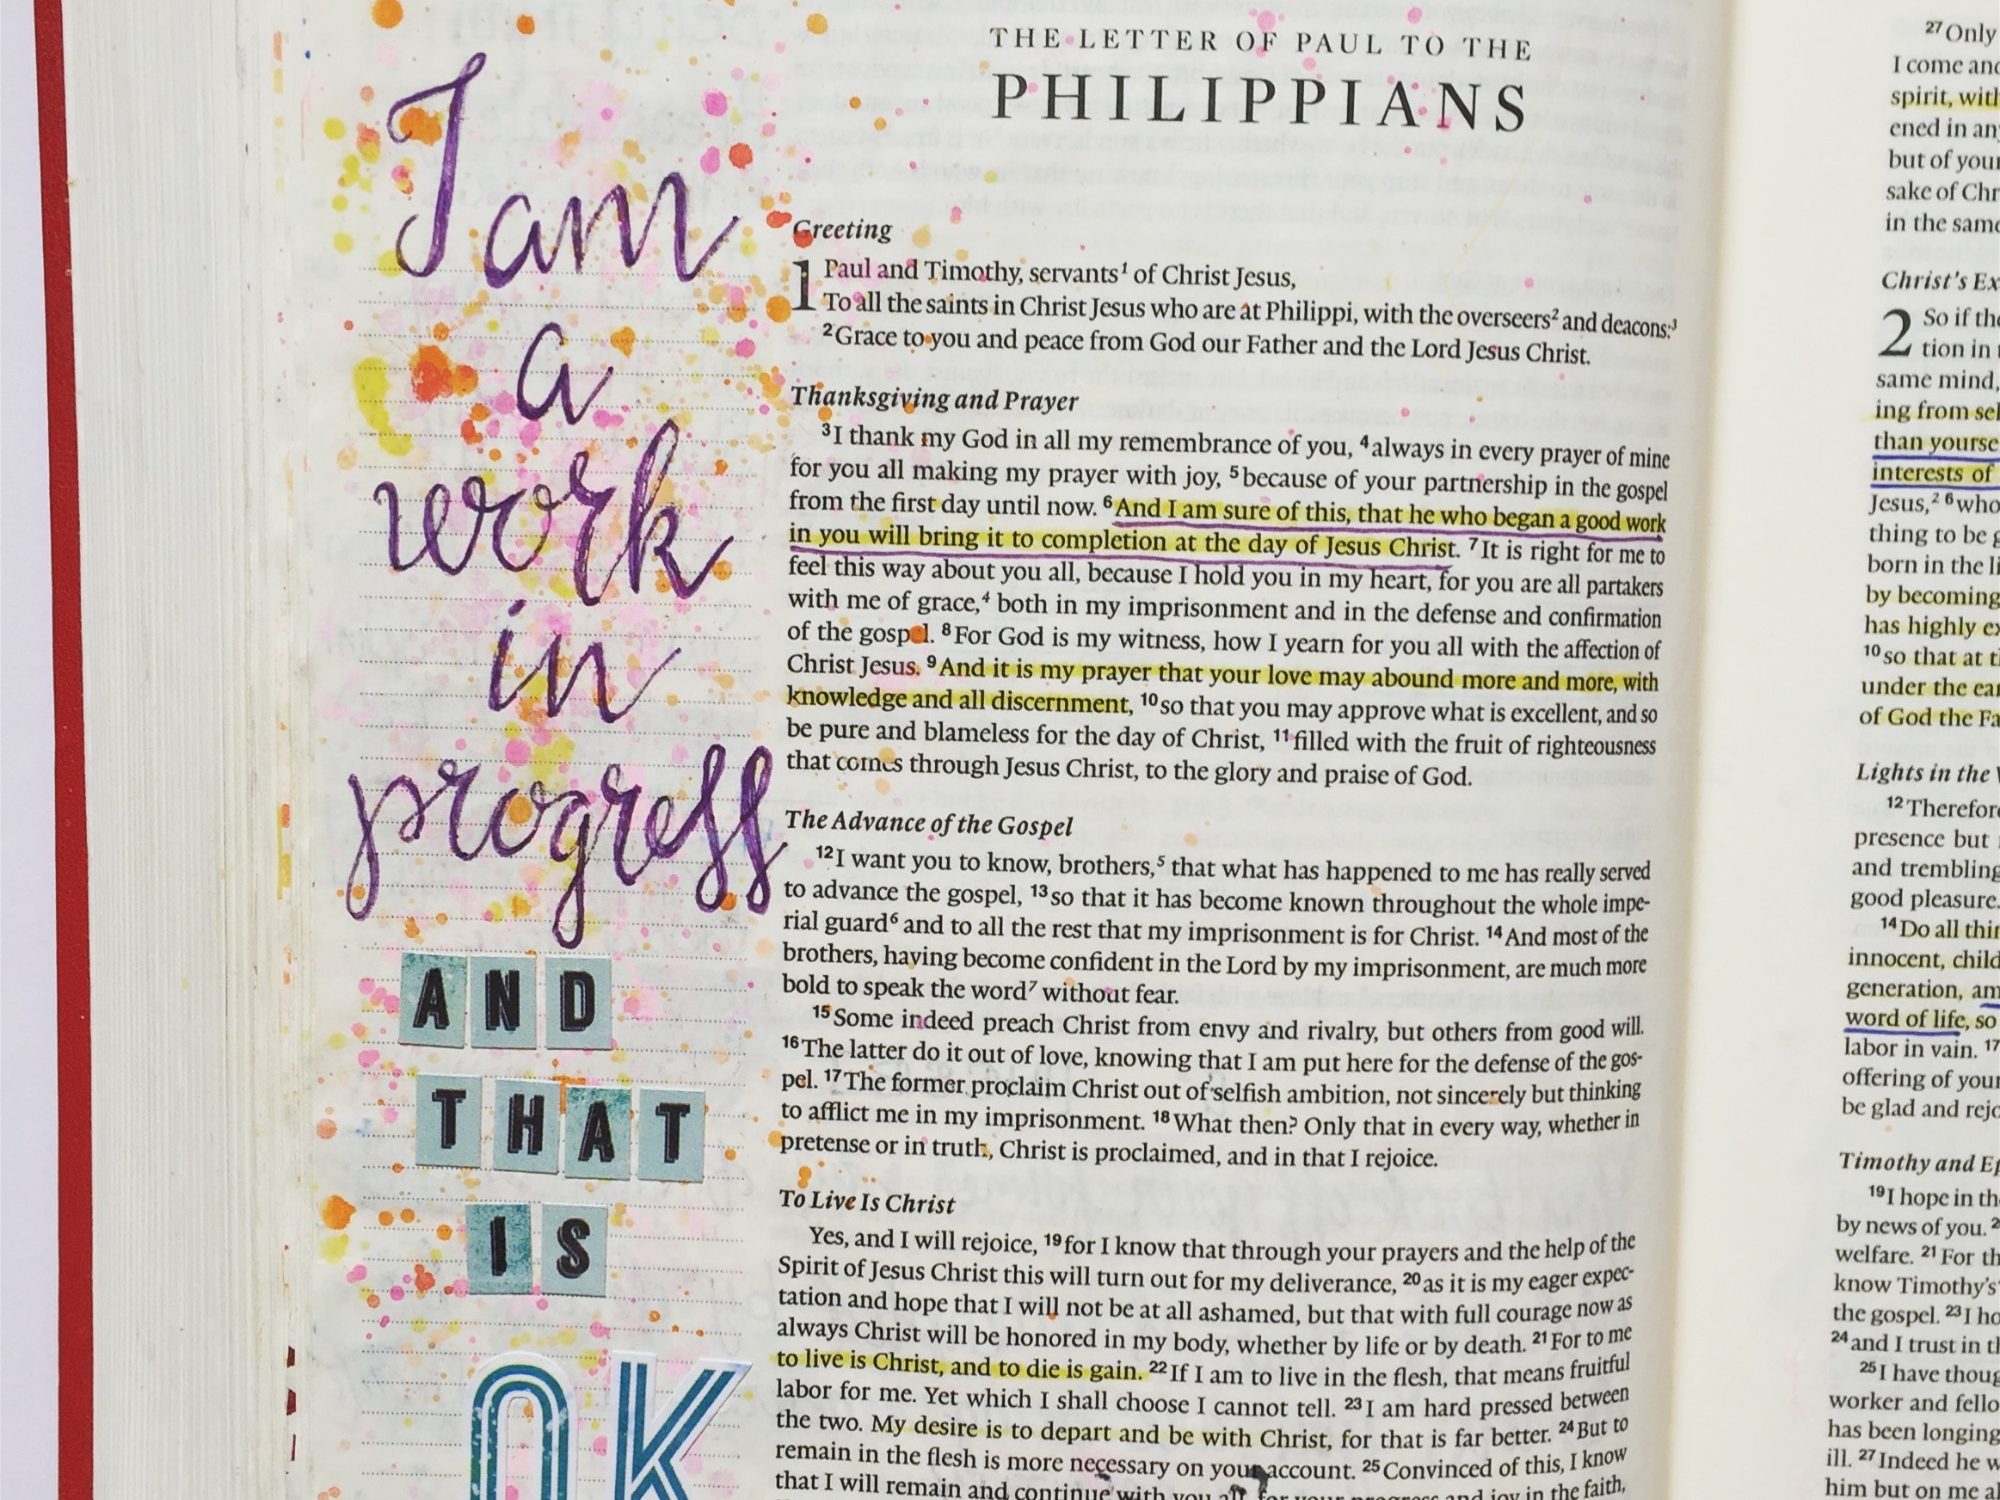 I am
a
work
in
progress
AND
THAT
IS
OK
THE LETTER OF PAUL TO THE
PHILIPPIANS
Greeting
1 Paul and Timothy, servants¹ of Christ Jesus,
To all the saints in Christ Jesus who are at Philippi, with the overseers² and deacons:³
²Grace to you and peace from God our Father and the Lord Jesus Christ.
Thanksgiving and Prayer
³I thank my God in all my remembrance of you, ⁴always in every prayer of mine
for you all making my prayer with joy, ⁵because of your partnership in the gospel
from the first day until now. ⁶And I am sure of this, that he who began a good work
in you will bring it to completion at the day of Jesus Christ. ⁷It is right for me to
feel this way about you all, because I hold you in my heart, for you are all partakers
with me of grace,⁴ both in my imprisonment and in the defense and confirmation
of the gospel. ⁸For God is my witness, how I yearn for you all with the affection of
Christ Jesus. ⁹And it is my prayer that your love may abound more and more, with
knowledge and all discernment, ¹⁰so that you may approve what is excellent, and so
be pure and blameless for the day of Christ, ¹¹filled with the fruit of righteousness
that comes through Jesus Christ, to the glory and praise of God.
The Advance of the Gospel
¹²I want you to know, brothers,⁵ that what has happened to me has really served
to advance the gospel, ¹³so that it has become known throughout the whole impe-
rial guard⁶ and to all the rest that my imprisonment is for Christ. ¹⁴And most of the
brothers, having become confident in the Lord by my imprisonment, are much more
bold to speak the word⁷ without fear.
¹⁵Some indeed preach Christ from envy and rivalry, but others from good will.
¹⁶The latter do it out of love, knowing that I am put here for the defense of the gos-
pel. ¹⁷The former proclaim Christ out of selfish ambition, not sincerely but thinking
to afflict me in my imprisonment. ¹⁸What then? Only that in every way, whether in
pretense or in truth, Christ is proclaimed, and in that I rejoice.
To Live Is Christ
Yes, and I will rejoice, ¹⁹for I know that through your prayers and the help of the
Spirit of Jesus Christ this will turn out for my deliverance, ²⁰as it is my eager expec-
tation and hope that I will not be at all ashamed, but that with full courage now as
always Christ will be honored in my body, whether by life or by death. ²¹For to me
to live is Christ, and to die is gain. ²²If I am to live in the flesh, that means fruitful
labor for me. Yet which I shall choose I cannot tell. ²³I am hard pressed between
the two. My desire is to depart and be with Christ, for that is far better. ²⁴But to
remain in the flesh is more necessary on your account. ²⁵Convinced of this, I know
that I will remain and continue with you all, for your progress and joy in the faith,
²⁷Only
I come and
spirit, with
ened in any
but of your
sake of Chr
in the same
Christ's Ex
2 So if the
tion in
same mind,
ing from sel
than yourse
interests of
Jesus,² ⁶who
thing to be g
born in the li
by becoming
has highly ex
¹⁰so that at t
under the ear
of God the Fa
Lights in the
¹²Therefor
presence but
and trembling
good pleasure.
¹⁴Do all thin
innocent, child
generation, am
word of life, so
labor in vain. ¹⁷
offering of your
be glad and rejo
Timothy and Ep
¹⁹I hope in the
by news of you. ²
welfare. ²¹For th
know Timothy's
the gospel. ²³I ho
²⁴and I trust in th
²⁵I have thoug
worker and fello
has been longing
ill. ²⁷Indeed he w
him but on me al